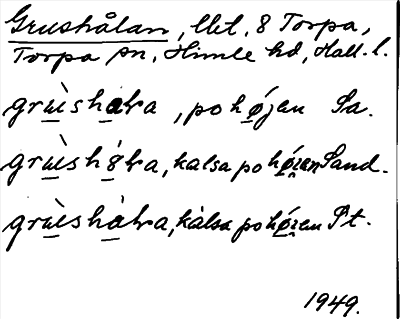 Grushålan, lht, 8 Torpa,
Torpa sn, Himle hd, Hall. l.
grùshɑlra, po hǿjen Sa.
grùshŏlra, kalsa po hǿren Sand.
grùshàlra, kàlsa po hǿren St.
1949.